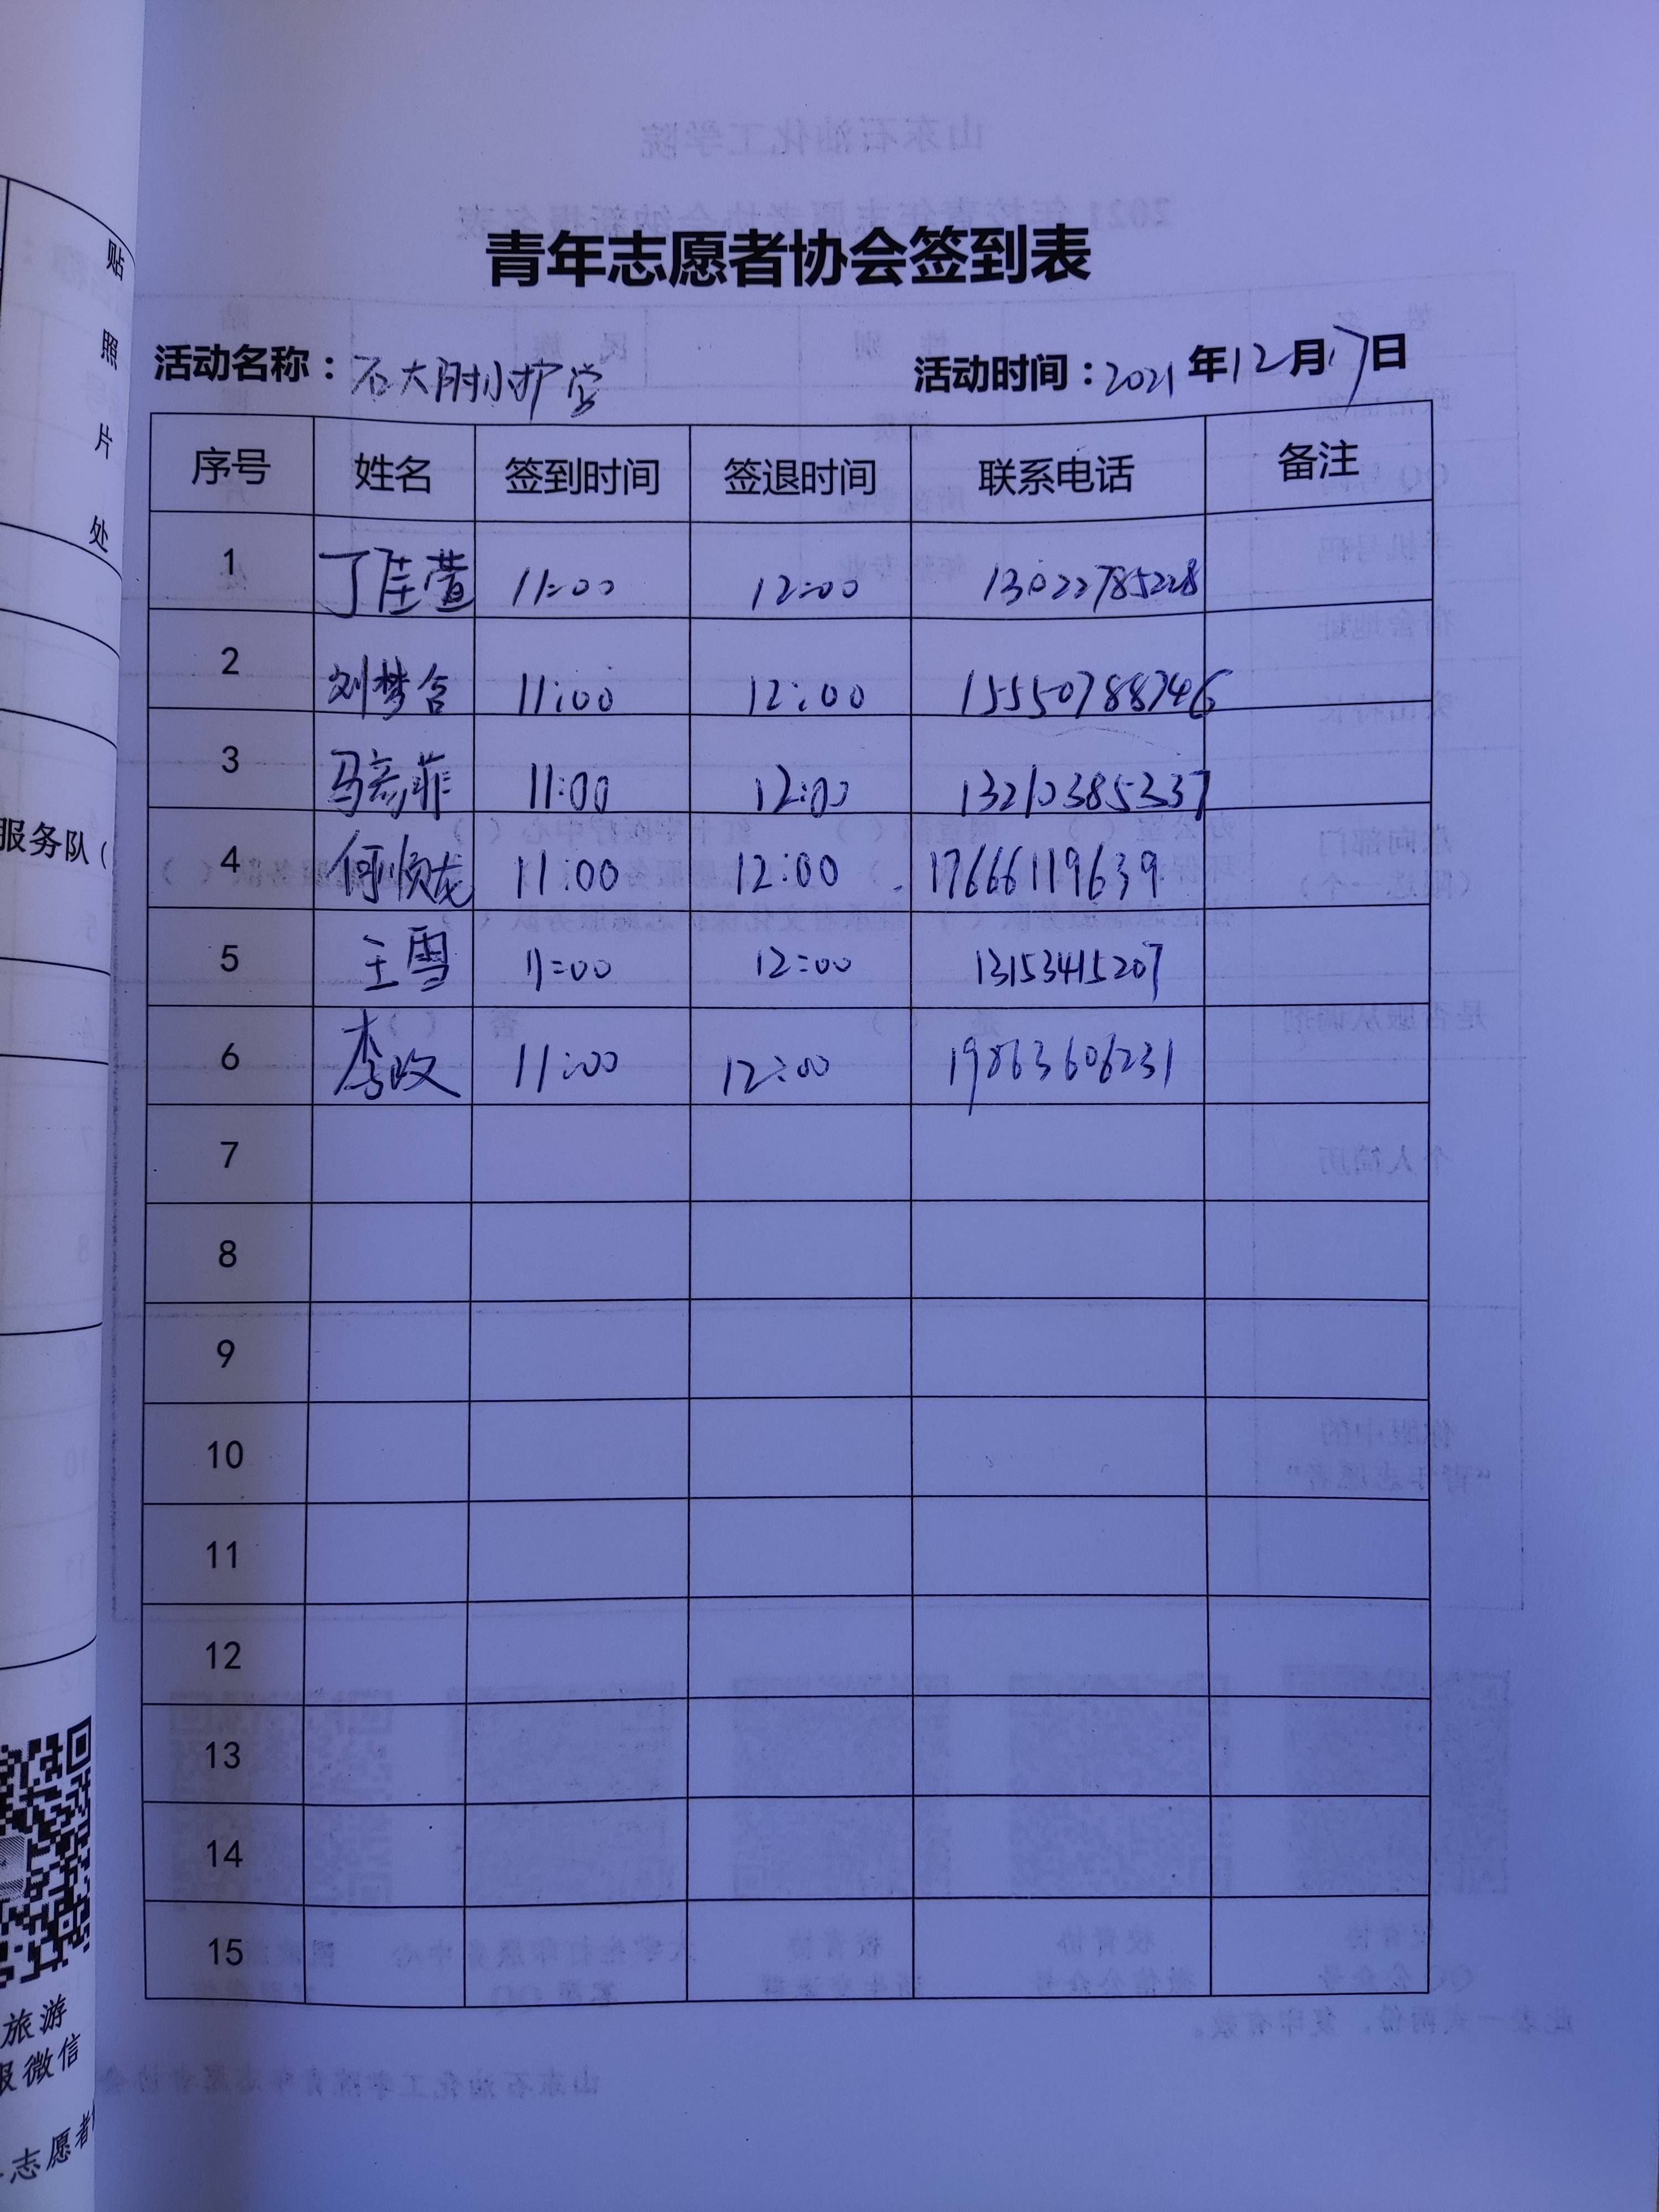 贴
照
片
处
服务队（
旅游
服微信
志愿者
青年志愿者协会签到表
活动名称：石大附小护学 活动时间：2021年12月17日
序号 姓名 签到时间 签退时间 联系电话 备注
1 丁佳萱 11:00 12:00 13022785228
2 刘梦含 11:00 12:00 15550788746
3 马彦菲 11:00 12:00 13210385337
4 何顺龙 11:00 12:00 17666119639
5 王雪 11:00 12:00 13153415207
6 李政 11:00 12:00 19863606231
7
8
9
10
11
12
13
14
15